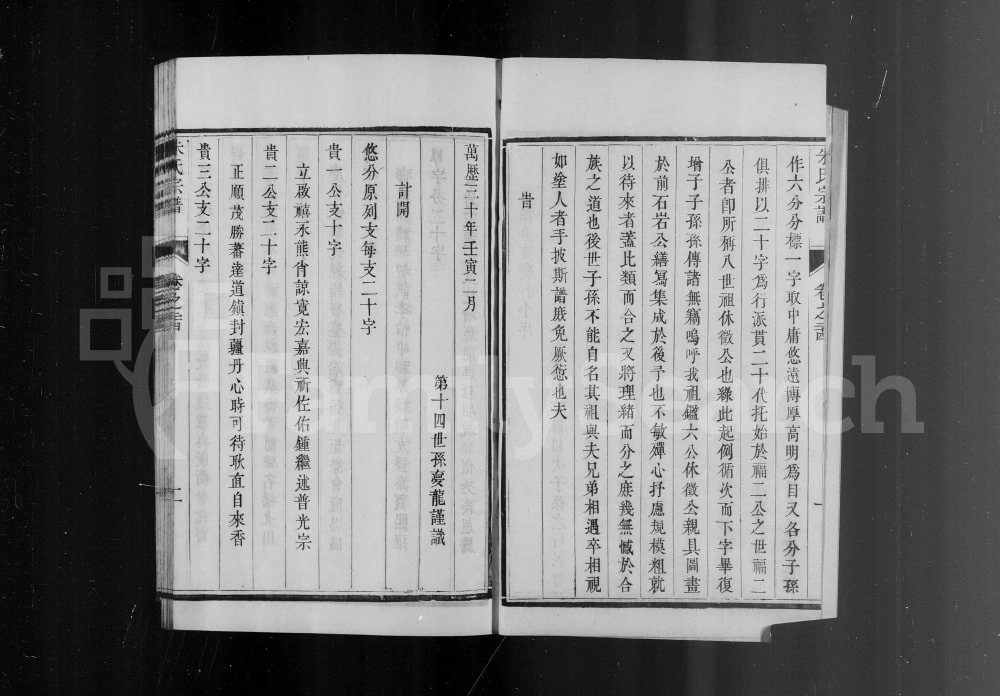 作六分分標一字取中庸悠遠博厚高明爲目又各分子孫
俱排以二十字爲行派貫二十代托始於福二公之世福二
公者卽所稱八世祖休徵公也緣此起例循次而下字畢復
增子子孫孫傳諸無窮嗚呼我祖鑑六公休徵公親具圖畫
於前石岩公繕寫集成於後予也不敏殫心抒慮規模粗就
以待來者蓋比類而合之又將理緒而分之庶幾無憾於合
族之道也後世子孫不能自名其祖與夫兄弟相遇卒相視
如塗人者手披斯譜庶免厥愆也夫
旹
萬歷三十年壬寅二月
第十四世孫夔龍謹識
計開
悠分原列支每支二十字
貴一公支十字
立啟禧永熊
諒寬宏嘉與祈佐佑鍾繼述普光宗
貴二公支二十字
正順茂勝蕃達道鎮封疆丹心時可待耿直自來香
貴三公支二十字
朱氏宗譜
卷之
朱氏宗譜
卷之
一
FamilySearch